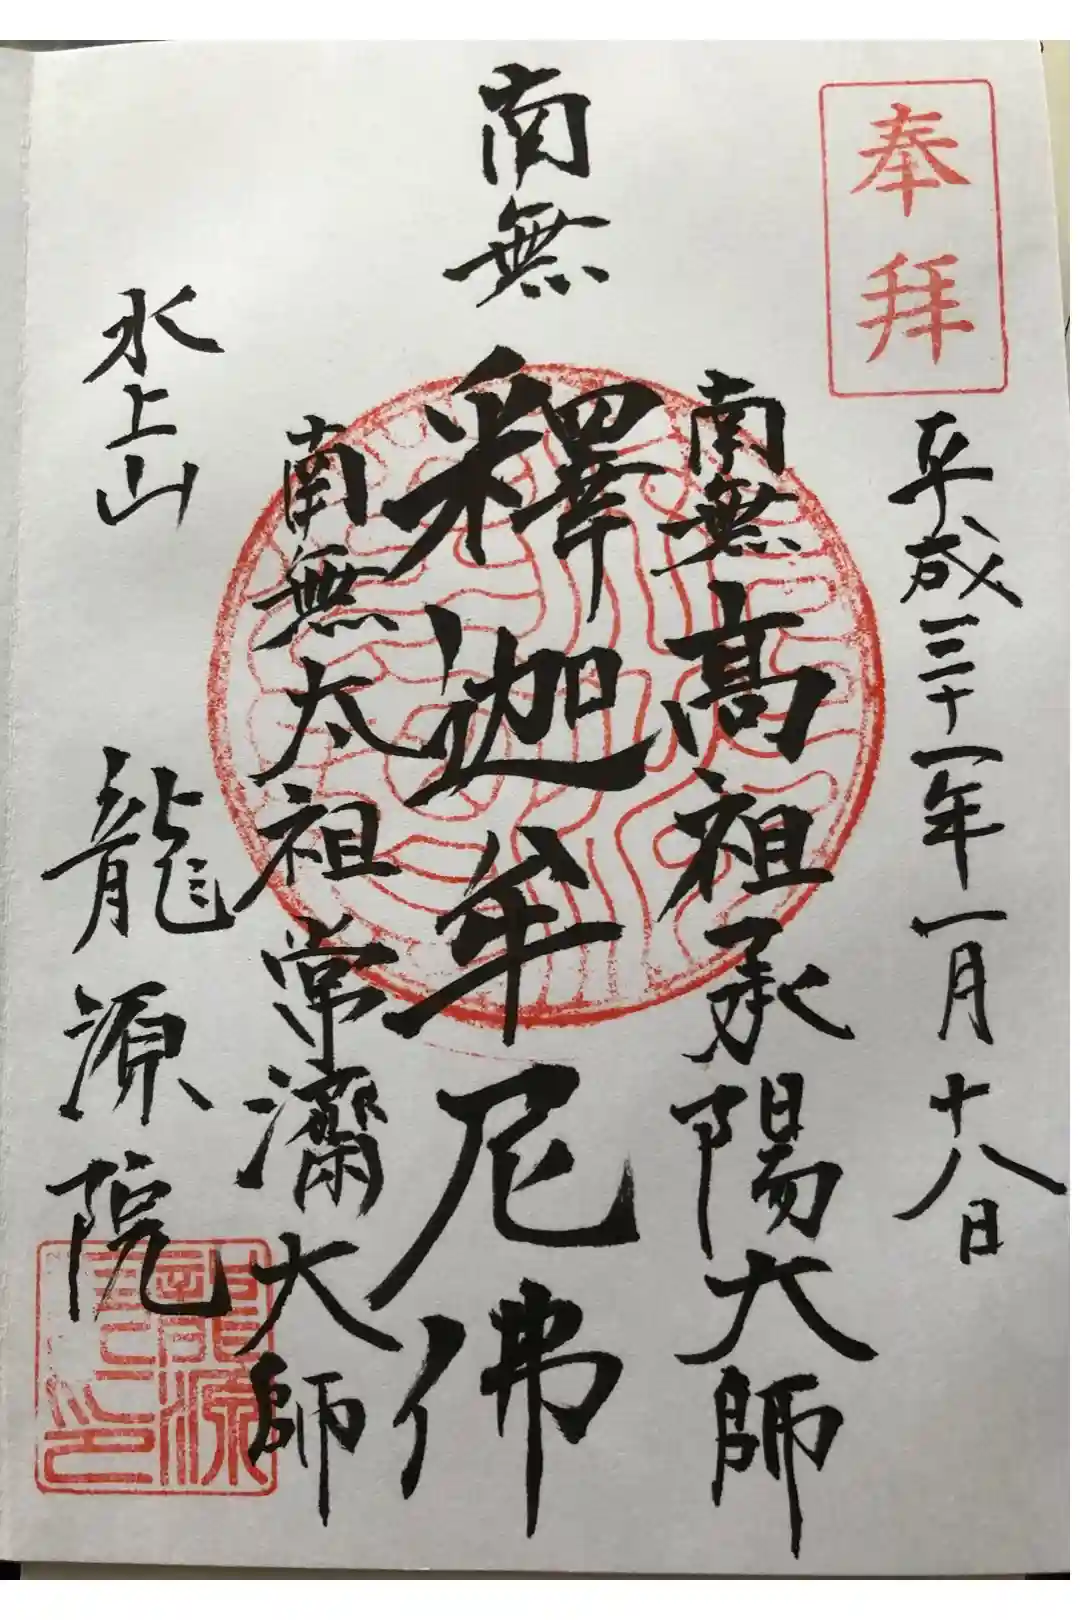 奉拜
平成三十一年一月十八日
南無高祖承陽大師
南無釋迦牟尼佛
南無太祖常濟大師
水上山
龍源院